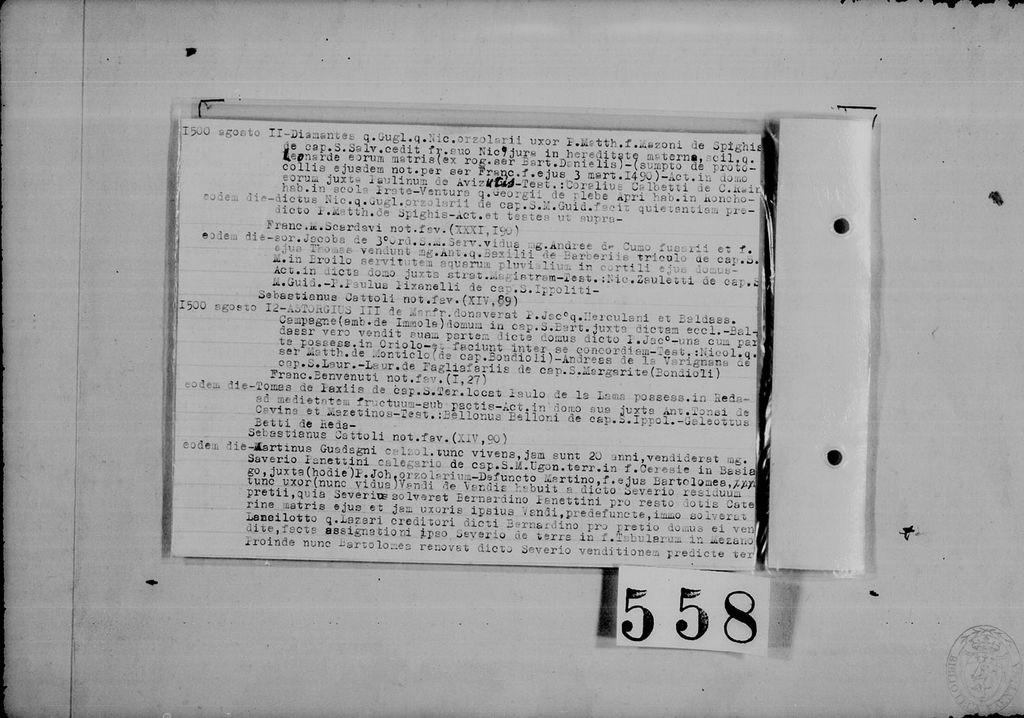 1500 agosto II-Diamantes q.Gugl.q.Nic.orzolarii uxor P.Matth.f.Mazoni de Spighis
de cap.S.Salv.cedit fr.suo Nic? jura in hereditate materna,scil.q.
Leonarde eorum matris(ex rog.ser Bart.Danielis)-(sumpto de proto-
collis ejusdem not.per ser Franc.f.ejus 3 mart.I490)-Act.in domo
eorum juxta Paulinum de Avizutis-Test.:Coralius Calbetti de C.Rain
hab.in scola Prate-Ventura q.Georgii de plebe Apri hab.in Roncho-
eodem die-dictus Nic.q.Gugl.orzolarii de cap.S.M.Guid.facit quietantiam pre-
dicto P.Matth.de Spighis-Act.et testes ut supra-
Franc.M.Scardavi not.fav.(XXXI,190)
eodem die-sor.Jacoba de 3°ord.S.M.Serv.vidua mg.Andree de Cumo fusarii et f.
ejus Thomas vendunt mg.Ant.q.Baxilii de Barberiis triculo de cap.S.
M.in Broilo servitutem aquarum pluvialium in cortili ejus domus-
Act.in dicta domo juxta strat.Magistram-Test.:Nic.Zauletti de cap.S
M.Guid.-P.Paulus Pixanelli de cap.S.Ippoliti-
Sebastianus Cattoli not.fav.(XIV,89)
1500 agosto I2-ASTORGIUS III de Manfr.donaverat P.Jac°q.Herculani et Baldass.
Campagne(amb.de Immola)domum in cap.S.Bart.juxta dictam eccl.-Bal-
dassr vero vendit suam partem dicte domus dicto P.Jac°-una cum par
te possess.in Oriolo-et faciunt inter se concordiam-Test.:Nicol.q.
ser Matth.de Monticlo(de cap.Bondioli)-Andreas de la Varignana de
cap.S.Laur.-Laur.de Pagliafariis de cap.S.Margarite(Bondioli)
Franc.Benvenuti not.fav.(I,27)
eodem die-Tomas de Paxiis de cap.S.Ter.locat Paulo de la Lama possess.in Reda-
ad medietatem fructuum-sub pactis-Act.in domo sua juxta Ant.Tonsi de
Cavina et Mazetinos-Test.:Bellonus Belloni de cap.S.Ippol.-Galeottus
Betti de Reda-
Sebastianus Cattoli not.fav.(XIV,90)
eodem die-Martinus Guadagni calzol.tunc vivens,jam sunt 20 anni,vendiderat mg.
Saverio Panettini calegario de cap.S.M.Ugon.terr.in f.Ceresie in Basia
go,juxta(hodie)P.Joh.orzolarium-Defuncto Martino,f.ejus Bartolomea,
tunc uxor(nunc vidua)Vandi de Vandis habuit a dicto Severio residuum
pretii,quia Severius solverat Bernardino Panettini pro resto dotis Cate
rine matris ejus et jam uxoris ipsius Vandi,predefuncte,immo solverat
Lancilotto q.Lazari creditori dicti Bernardino pro pretio domus ei ven
dite,facta assignationi ipso Severio de terra in f.Tabularum in Mezano
Proinde nunc Bartolomea renovat dicto Severio venditionem predicte ter
558